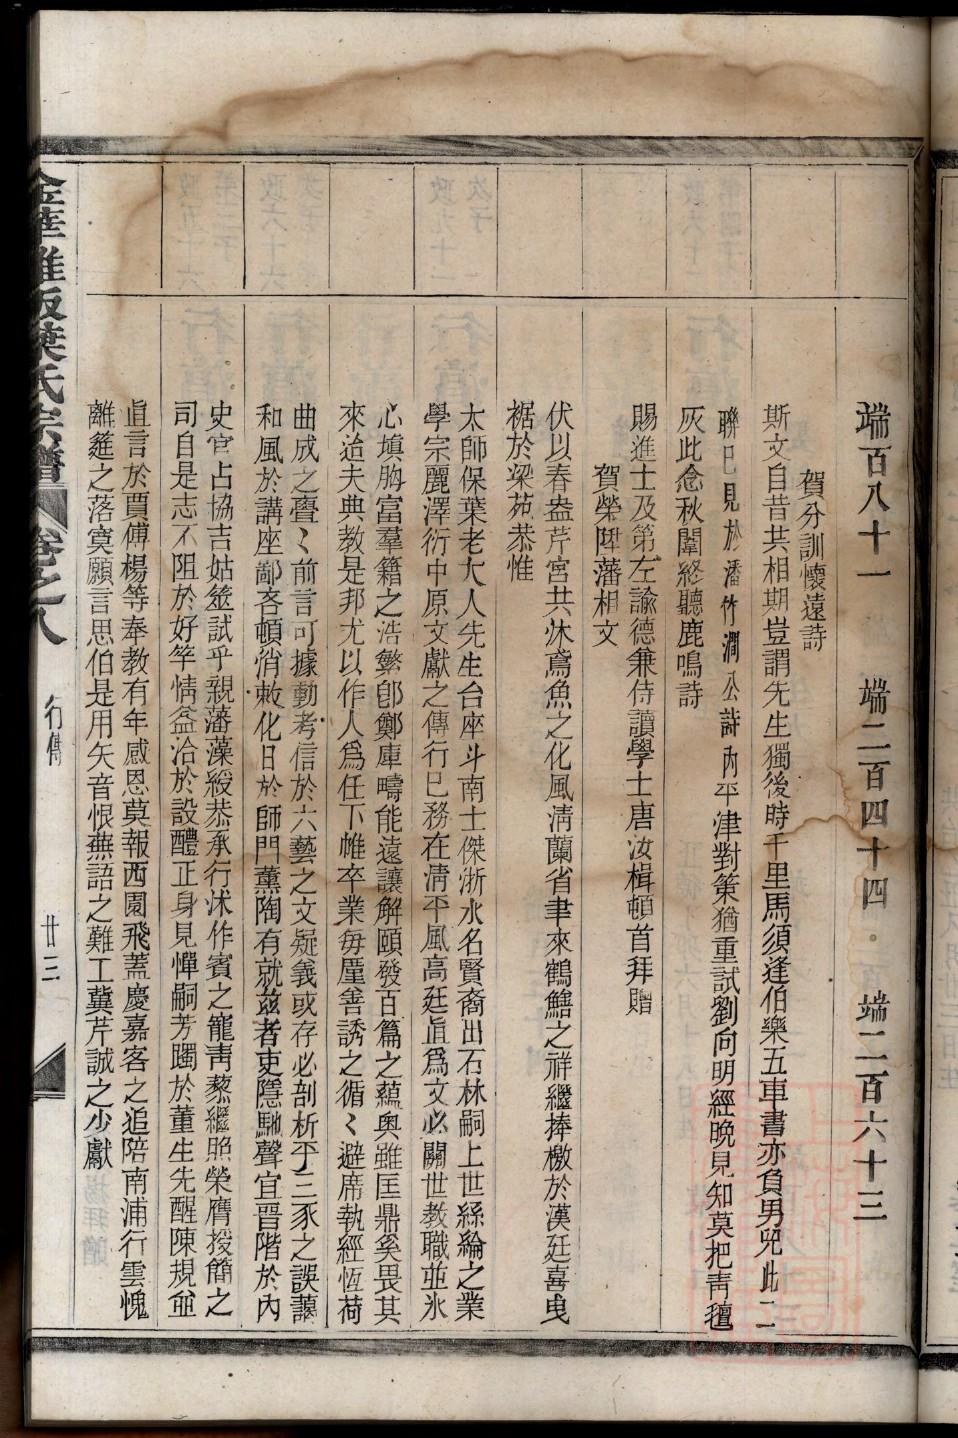 端百八十一　端二百四十四　端二百六十三
賀分訓懷遠詩
斯文自昔共相期豈謂先生獨後時千里馬須逢伯樂五車書亦負男兒此二
聯已見於潘竹澗公詩內平津對策猶重試劉向明經晚見知莫把靑氊
灰此念秋闈終聽鹿鳴詩
賜進士及第左諭德兼侍讀學士唐汝楫頓首拜贈
賀榮陞藩相文
伏以春盎芹宮共沐鳶魚之化風淸蘭省聿來鶴鱔之祥繼捧檄於漢廷喜曳
裾於梁苑恭惟
太師保葉老大人先生台座斗南士傑浙水名賢裔出石林嗣上世絲綸之業
學宗麗澤衍中原文獻之傳行已務在淸平風高廷直爲文必關世教職並永
心塡胸富羣籍之浩繁卽鄭庫疇能遠讓解頤發百篇之蘊奧雖匡鼎奚畏其
來迨夫典教是邦尤以作人爲任下帷卒業每厪善誘之循〻避席執經恆荷
曲成之亹〻前言可據動考信於六藝之文疑義或存必剖析乎三豕之誤藹
和風於講座鄙吝頓消敕化日於師門薰陶有就兹者吏隱馳聲宜晉階於內
史官占協吉姑筮試乎親藩藻綬恭承行沐作賓之寵靑藜繼照榮膺授簡之
司自是志不阻於好竽情益洽於設醴正身見憚嗣芳躅於董生先醒陳規並
直言於賈傅楊等奉教有年感恩莫報西園飛蓋慶嘉客之追陪南浦行雲愧
離筵之落寞願言思伯是用矢音恨蕪語之難工冀芹誠之少獻
金華雅畈葉氏宗譜　卷之八　行傳　廿三